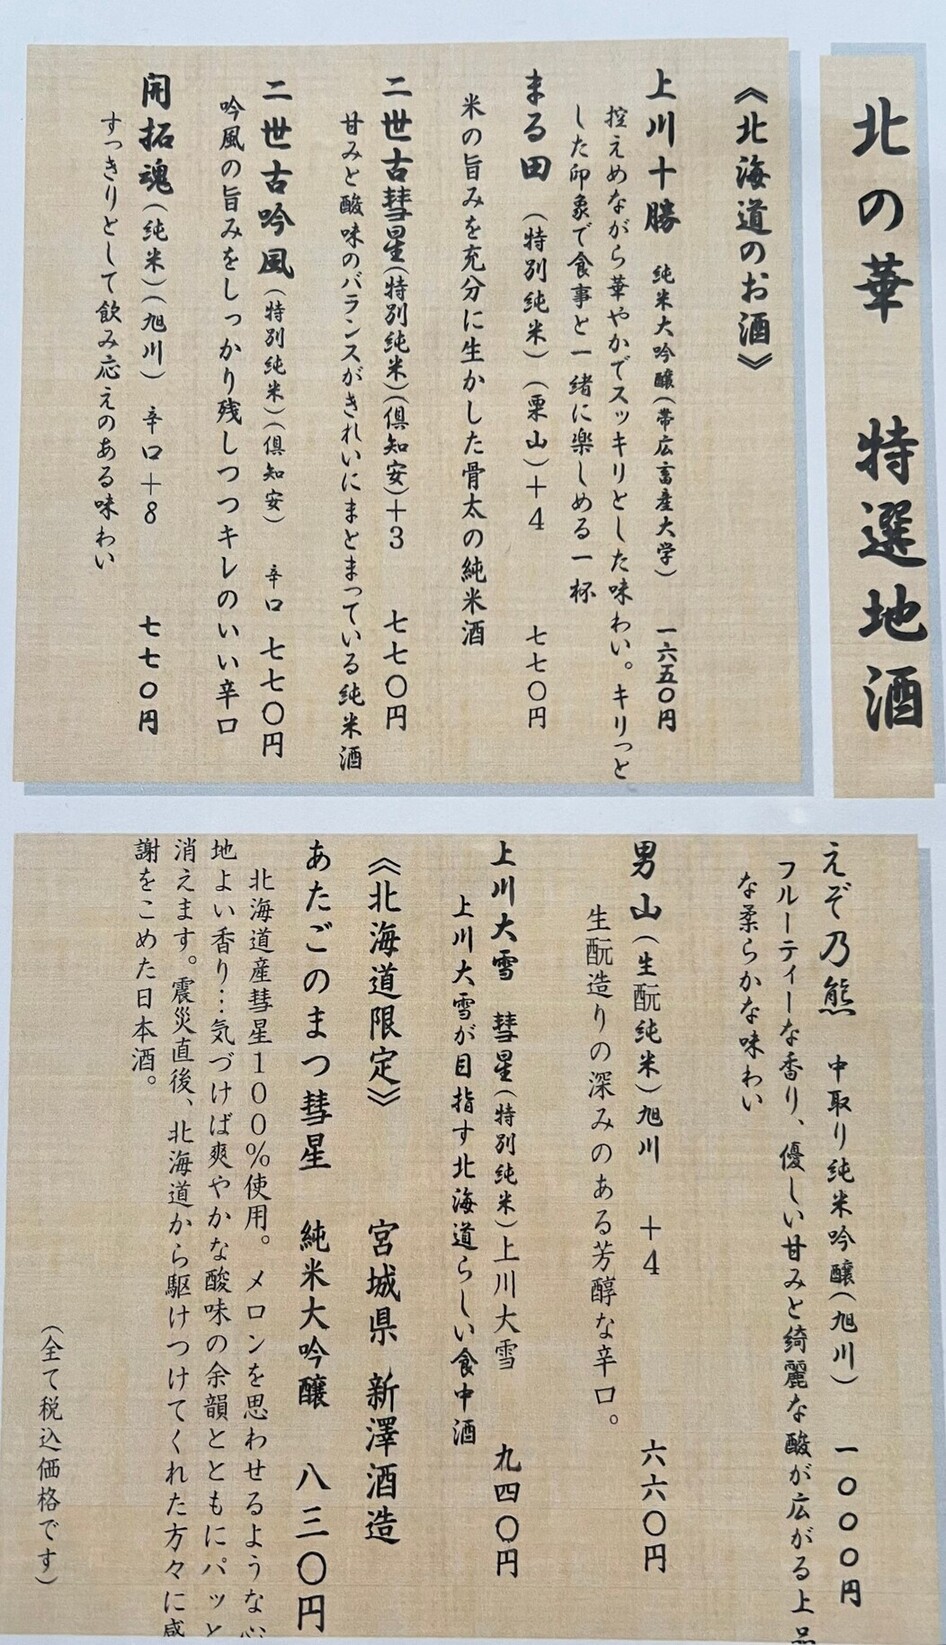 北の華　特選地酒
《北海道のお酒》
上川十勝　純米大吟醸（帯広畜産大学）　一六五〇円
控えめながら華やかでスッキリとした味わい。キリっと
した印象で食事と一緒に楽しめる一杯
まる田　（特別純米）（栗山）＋４　七七〇円
米の旨みを充分に生かした骨太の純米酒
二世古彗星（特別純米）（倶知安）＋３　七七〇円
甘みと酸味のバランスがきれいにまとまっている純米酒
二世古吟風（特別純米）（倶知安）　辛口　七七〇円
吟風の旨みをしっかり残しつつキレのいい辛口
開拓魂（純米）（旭川）　辛口＋８　七七〇円
すっきりとして飲み応えのある味わい
えぞ乃熊　中取り純米吟醸（旭川）　一〇〇〇円
フルーティーな香り、優しい甘みと綺麗な酸が広がる上品
な柔らかな味わい
男山（生酛純米）旭川　＋４　六六〇円
生酛造りの深みのある芳醇な辛口。
上川大雪　彗星（特別純米）上川大雪　九四〇円
上川大雪が目指す北海道らしい食中酒
《北海道限定》　宮城県　新澤酒造
あたごのまつ彗星　純米大吟醸　八三〇円
北海道産彗星１００％使用。メロンを思わせるような心
地よい香り…気づけば爽やかな酸味の余韻とともにパッと
消えます。震災直後、北海道から駆けつけてくれた方々に感
謝をこめた日本酒。
（全て税込価格です）